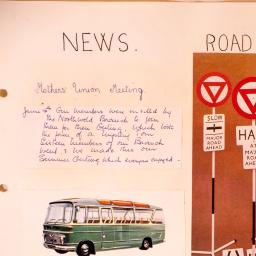 NEWS.
ROAD
Mothers' Union Meeting.
June 4th Our members were invited by
the Northwold Branch to join
them for their Outing, which took
the form of a mystery tour.
Sixteen members of our Branch
went & we made this our
Summer Outing which everyone enjoyed -
SLOW
MAJOR
ROAD
AHEAD
HA
AT
MAJ
ROA
AHEAD